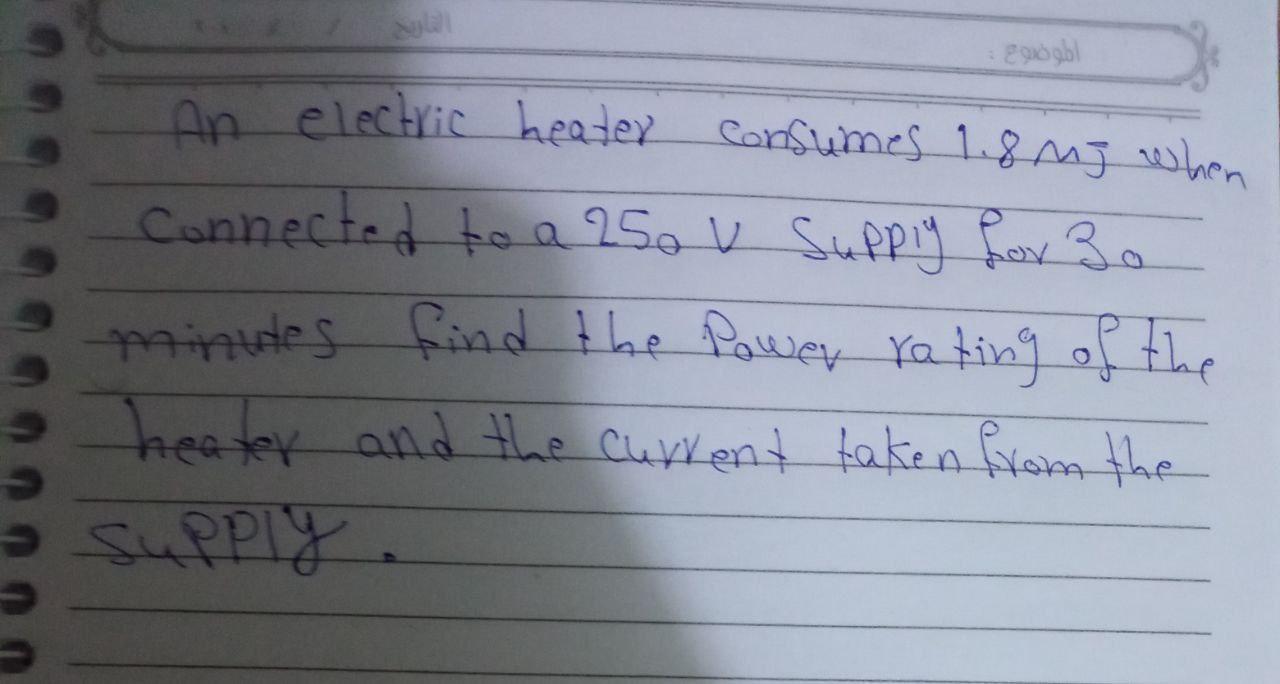 التاريخ / /
الموضوع :
An electric heater consumes 1.8 MJ when
connected to a 250 V supply for 30
minutes find the Power rating of the
heater and the current taken from the
supply.